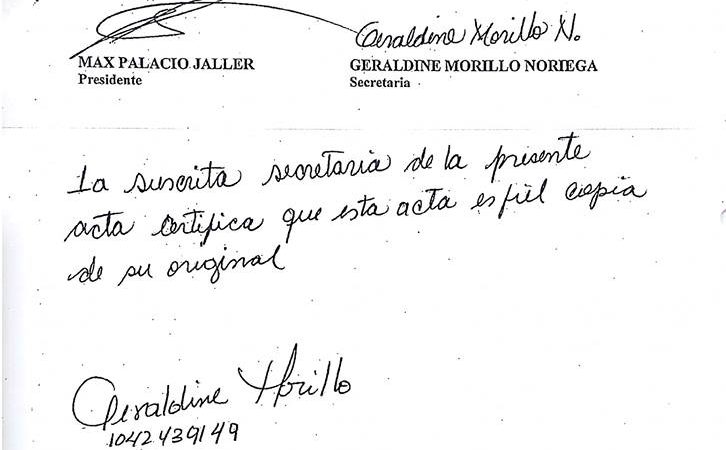 Geraldine Morillo N.
MAX PALACIO JALLER GERALDINE MORILLO NORIEGA
Presidente Secretaria
La suscrita secretaria de la presente
acta certifica que esta acta es fiel copia
de su original
Geraldine Morillo
1042439149